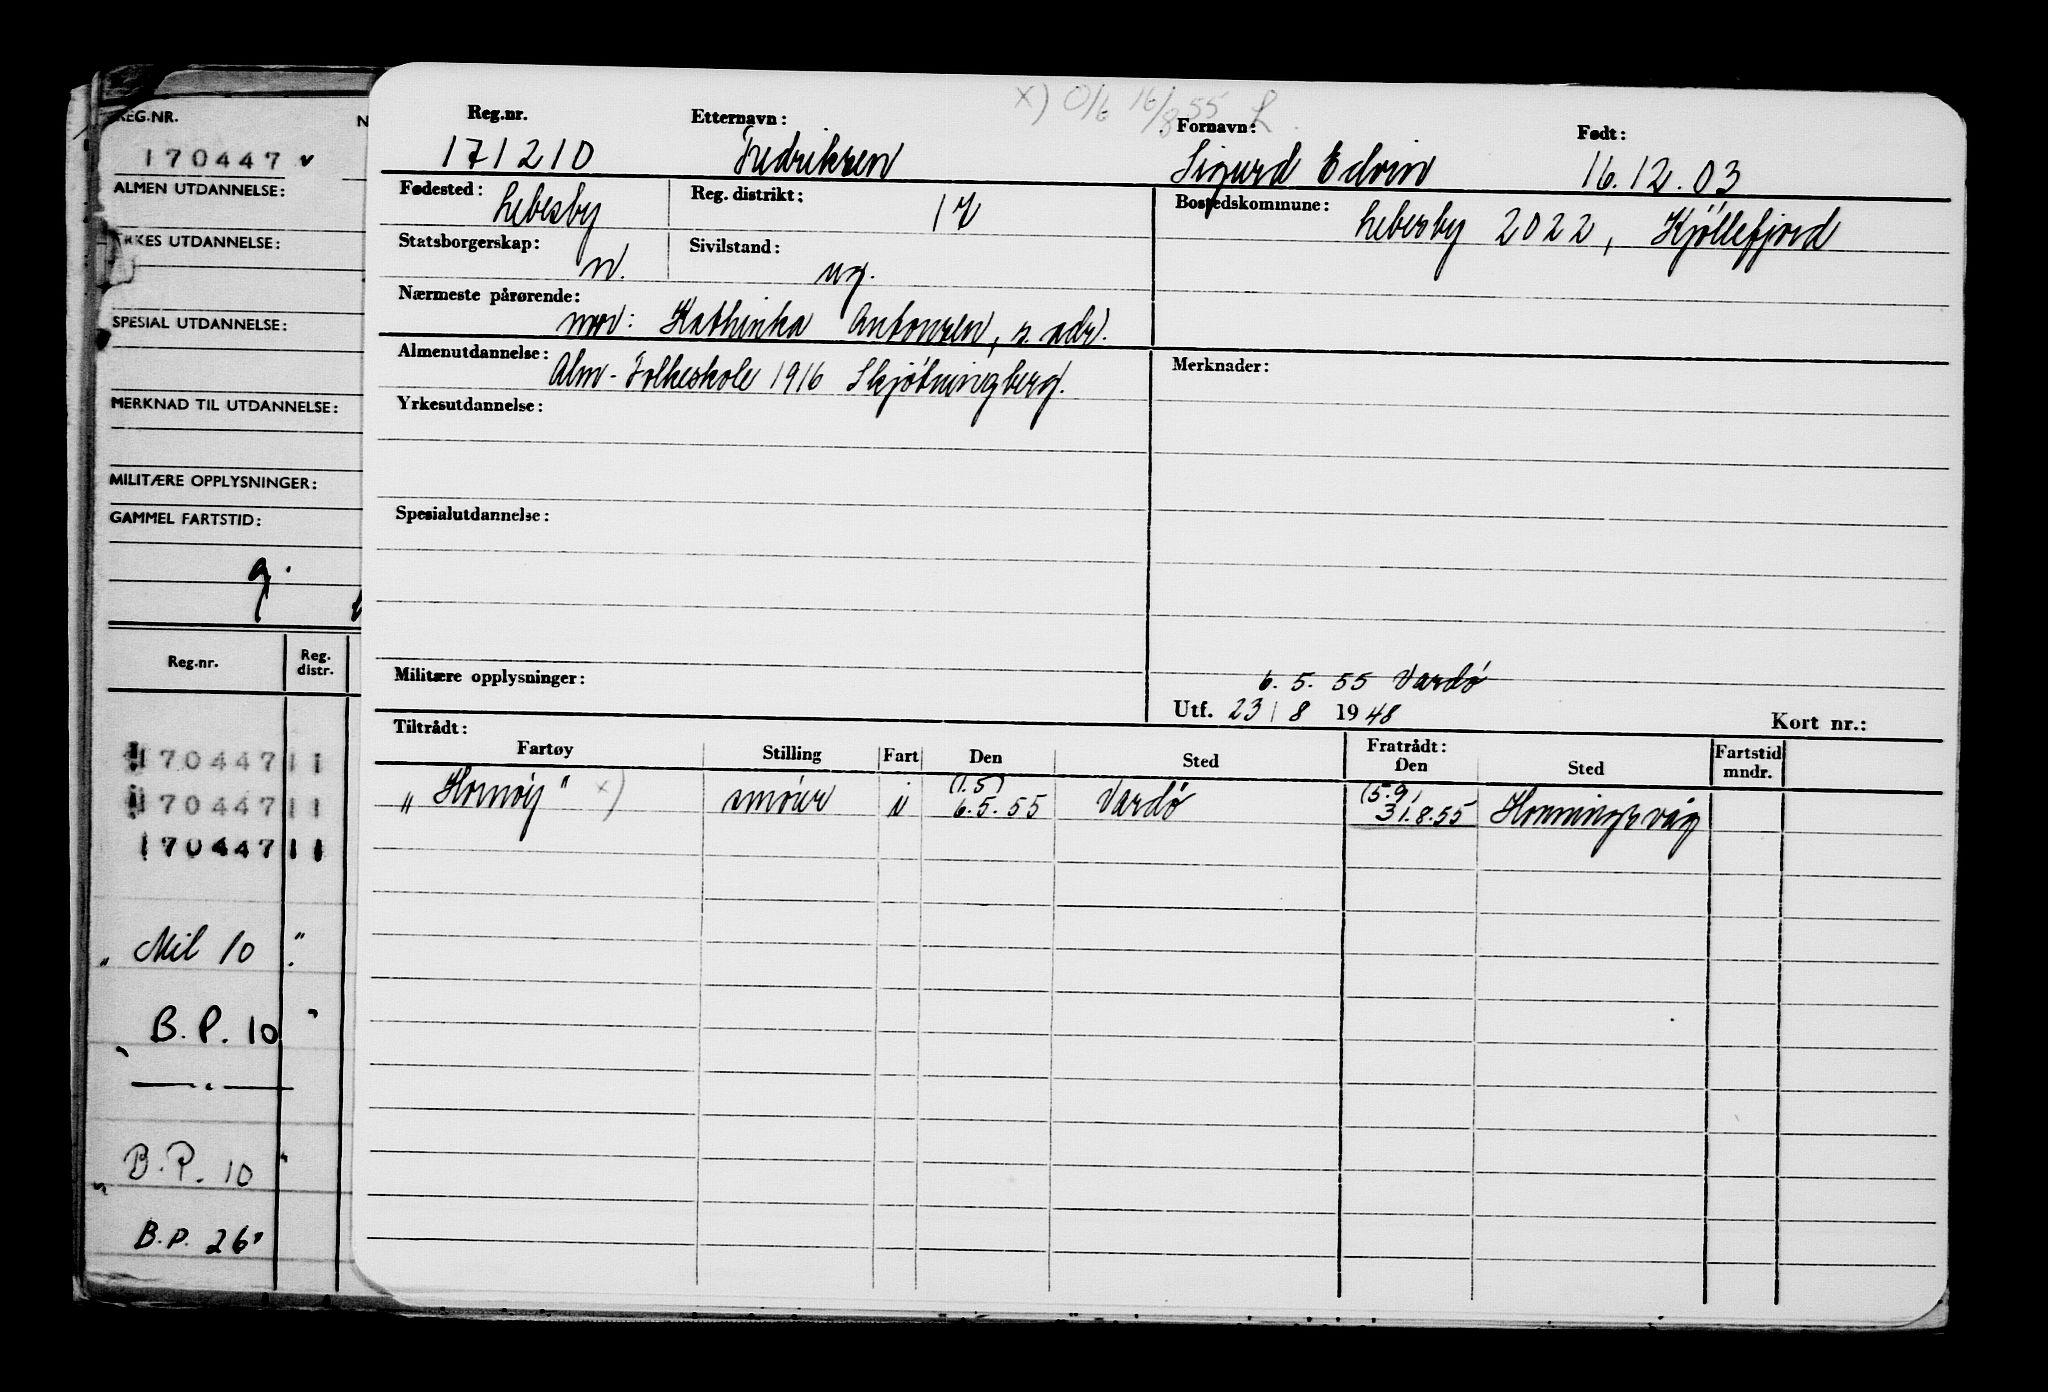 x) O/6 16/8 55 L.
REG.NR. N
170447 v
ALMEN UTDANNELSE:
RKES UTDANNELSE:
SPESIAL UTDANNELSE:
MERKNAD TIL UTDANNELSE:
MILITÆRE OPPLYSNINGER:
GAMMEL FARTSTID:
g.
Reg.nr. Reg. distr.
170447 11
170447 11
170447 11
„ Mil 10 "
B.P. 10 "
— " —
B.P. 10 "
B.P. 26"
Reg.nr. Etternavn: Fornavn: Født:
171210 Fredriksen Sigurd Edvin 16.12.03
Fødested: Lebesby Reg. distrikt: 17 Bostedskommune: Lebesby 2022, Kjøllefjord
Statsborgerskap: n. Sivilstand: ug.
Nærmeste pårørende: mor: Kathinka Antonsen, s. adr.
Almenutdannelse: Alm-Folkeskole 1916 Skjøtningberg. Merknader:
Yrkesutdannelse:
Spesialutdannelse:
6.5.55 Vardø
Militære opplysninger: Utf. 23/8 1948 Kort nr.:
Tiltrådt: Fratrådt:
Fartøy Stilling Fart Den Sted Den Sted Fartstid mndr.
(1.5) (5.9)
„Hornøy" x) smører i 6.5.55 Vardø 31.8.55 Honningsvåg